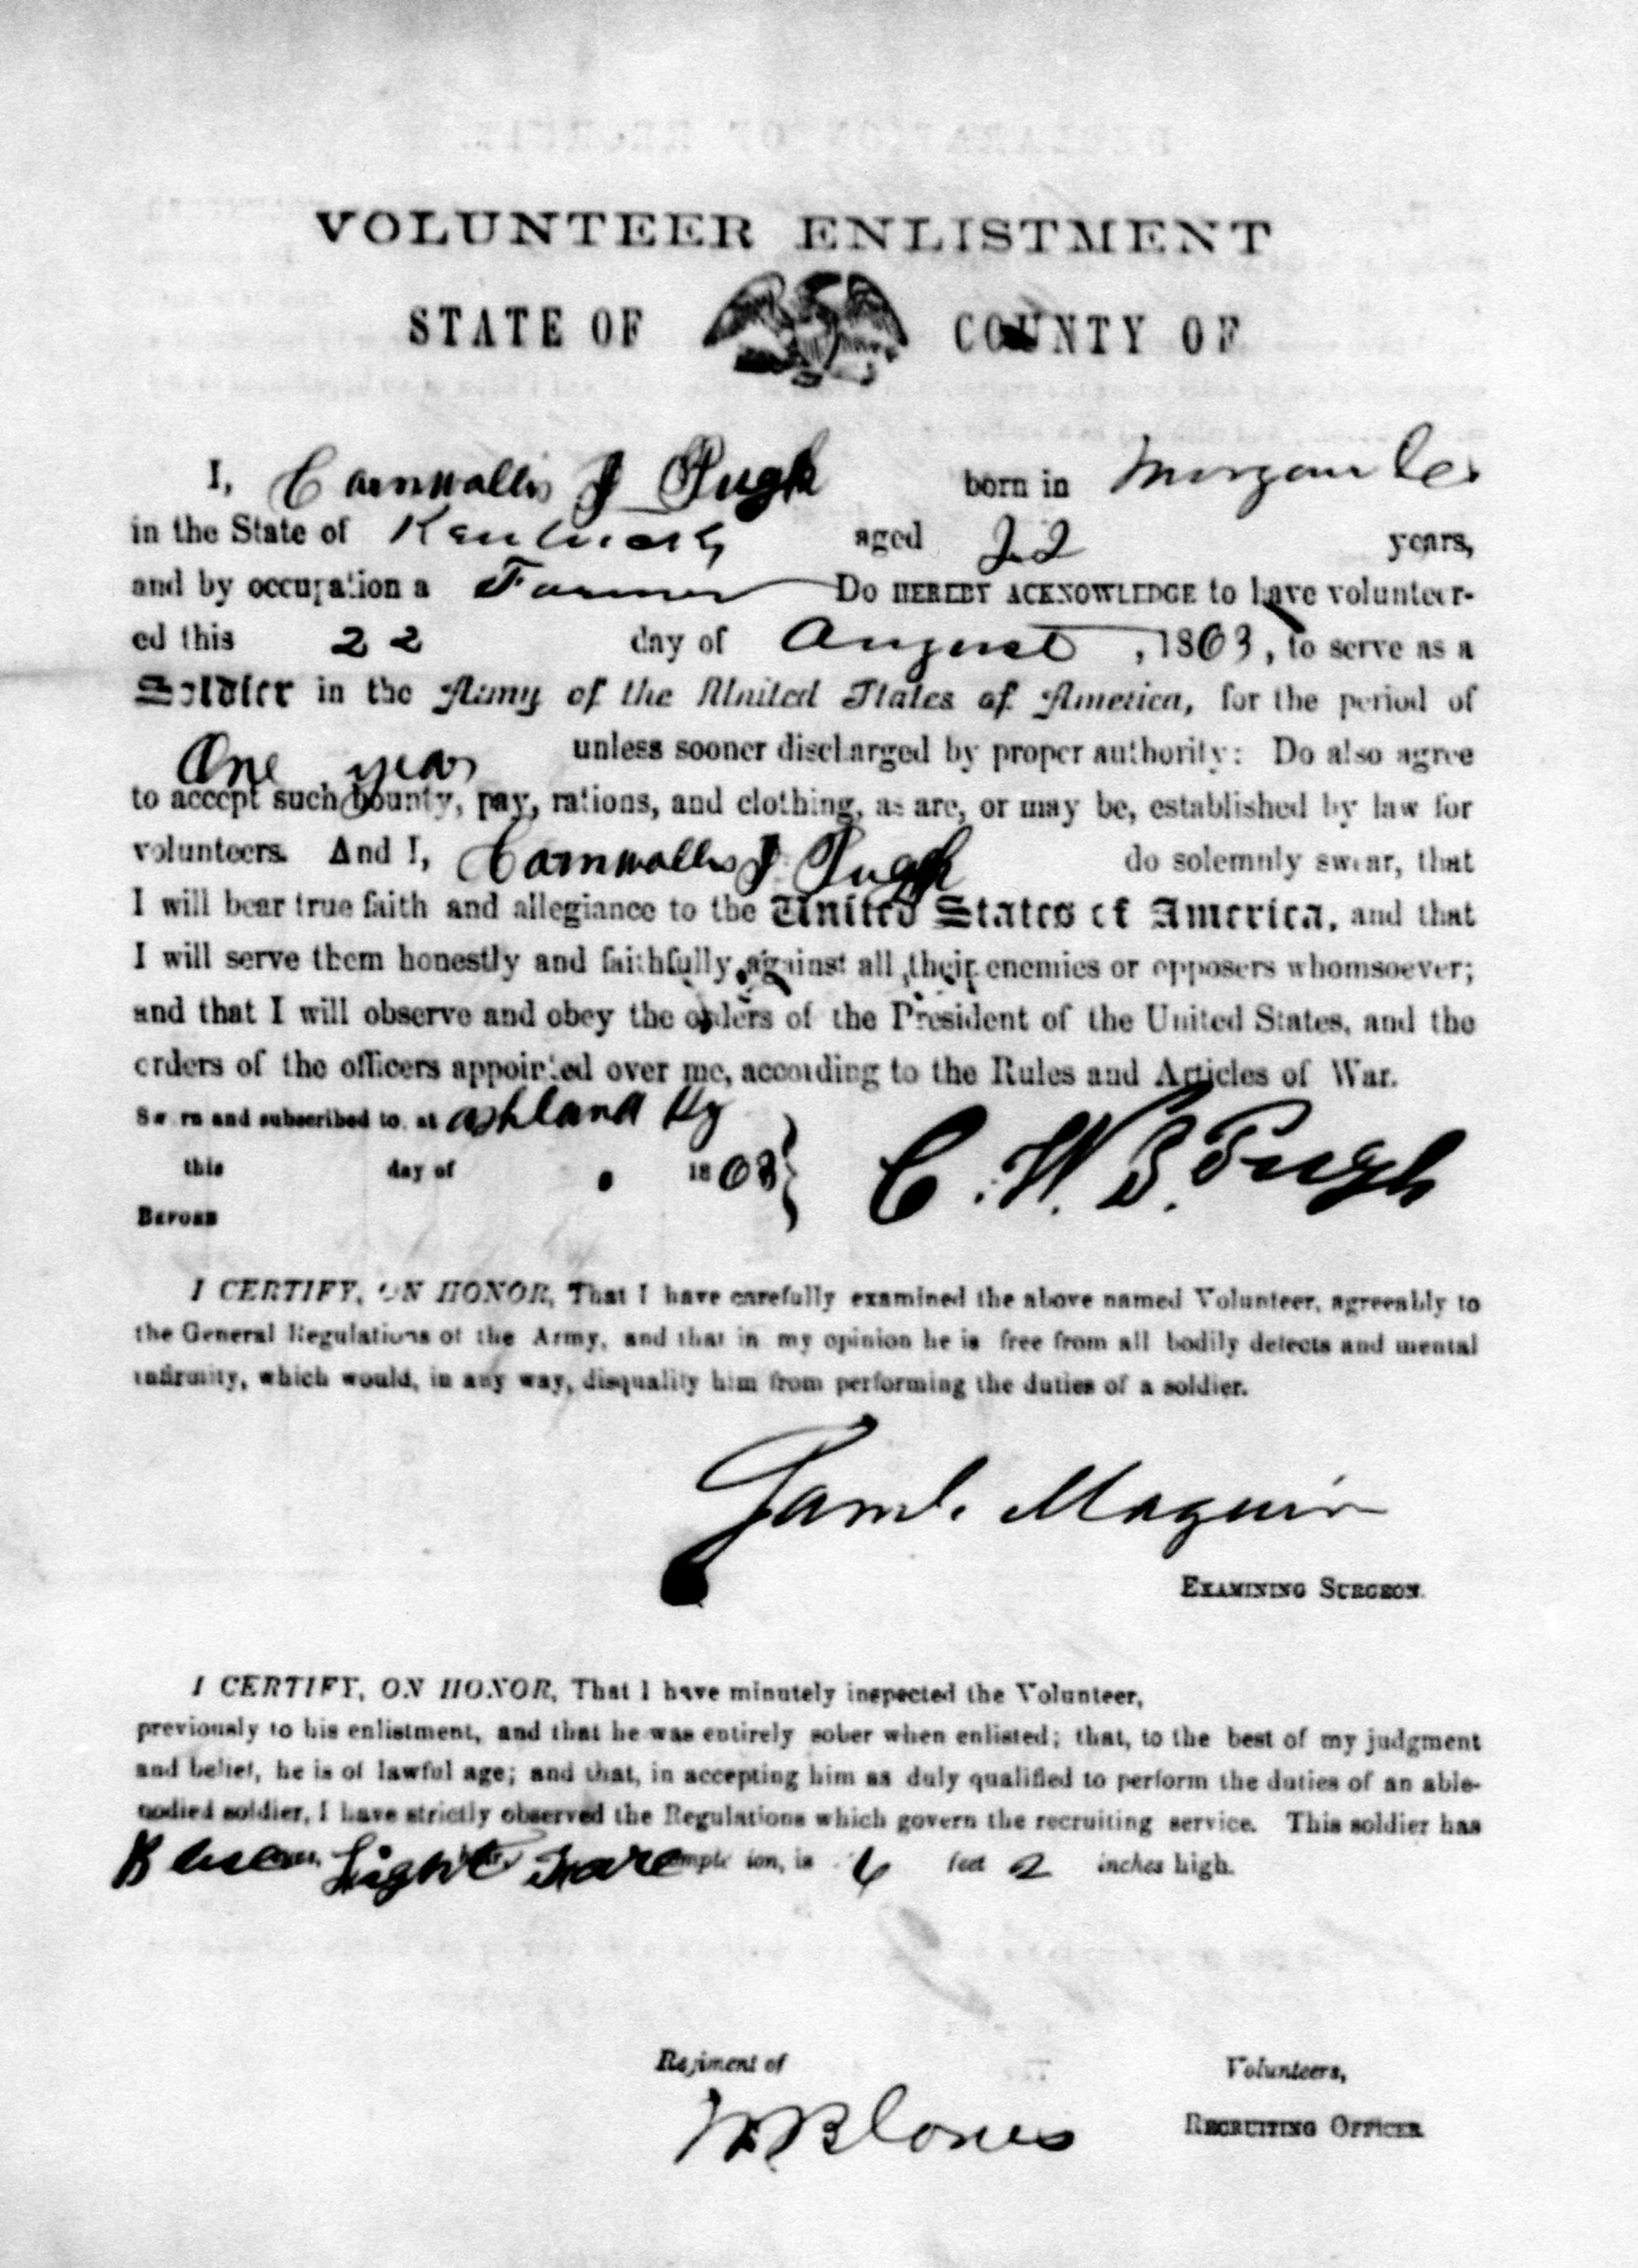 VOLUNTEER ENLISTMENT
STATE OF COUNTY OF
I, Cornwallis J Pugh born in Morgan Co.
in the State of Kentucky aged 22 years,
and by occupation a Farmer Do HEREBY ACKNOWLEDGE to have volunteer-
ed this 22 day of August, 1863, to serve as a
Soldier in the Army of the United States of America, for the period of
One year unless sooner discharged by proper authority: Do also agree
to accept such bounty, pay, rations, and clothing, as are, or may be, established by law for
volunteers. And I, Cornwallis J Pugh do solemnly swear, that
I will bear true faith and allegiance to the United States of America, and that
I will serve them honestly and faithfully against all their enemies or opposers whomsoever;
and that I will observe and obey the orders of the President of the United States, and the
orders of the officers appointed over me, according to the Rules and Articles of War.
Sworn and subscribed to, at Ashland Ky
this day of 1863 C. W. B. Pugh
BEFORE
I CERTIFY, ON HONOR, That I have carefully examined the above named Volunteer, agreeably to
the General Regulations of the Army, and that in my opinion he is free from all bodily defects and mental
infirmity, which would, in any way, disqualify him from performing the duties of a soldier.
Saml. Maguir
EXAMINING SURGEON.
I CERTIFY, ON HONOR, That I have minutely inspected the Volunteer,
previously to his enlistment, and that he was entirely sober when enlisted; that, to the best of my judgment
and belief, he is of lawful age; and that, in accepting him as duly qualified to perform the duties of an able-
bodied soldier, I have strictly observed the Regulations which govern the recruiting service. This soldier has
Light complexion, is 6 feet 2 inches high.
Regiment of Volunteers,
RECRUITING OFFICER